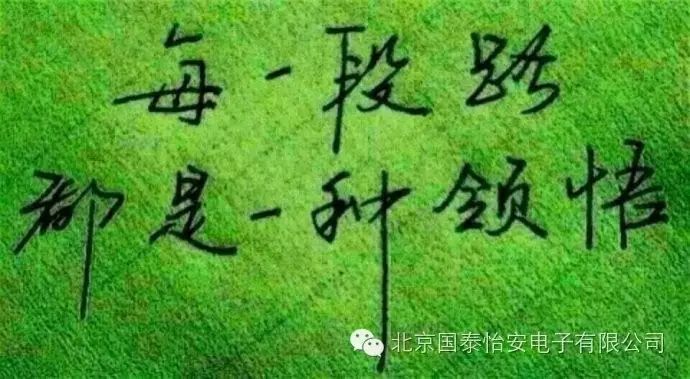 每一段路
都是一种领悟
北京国泰怡安电子有限公司